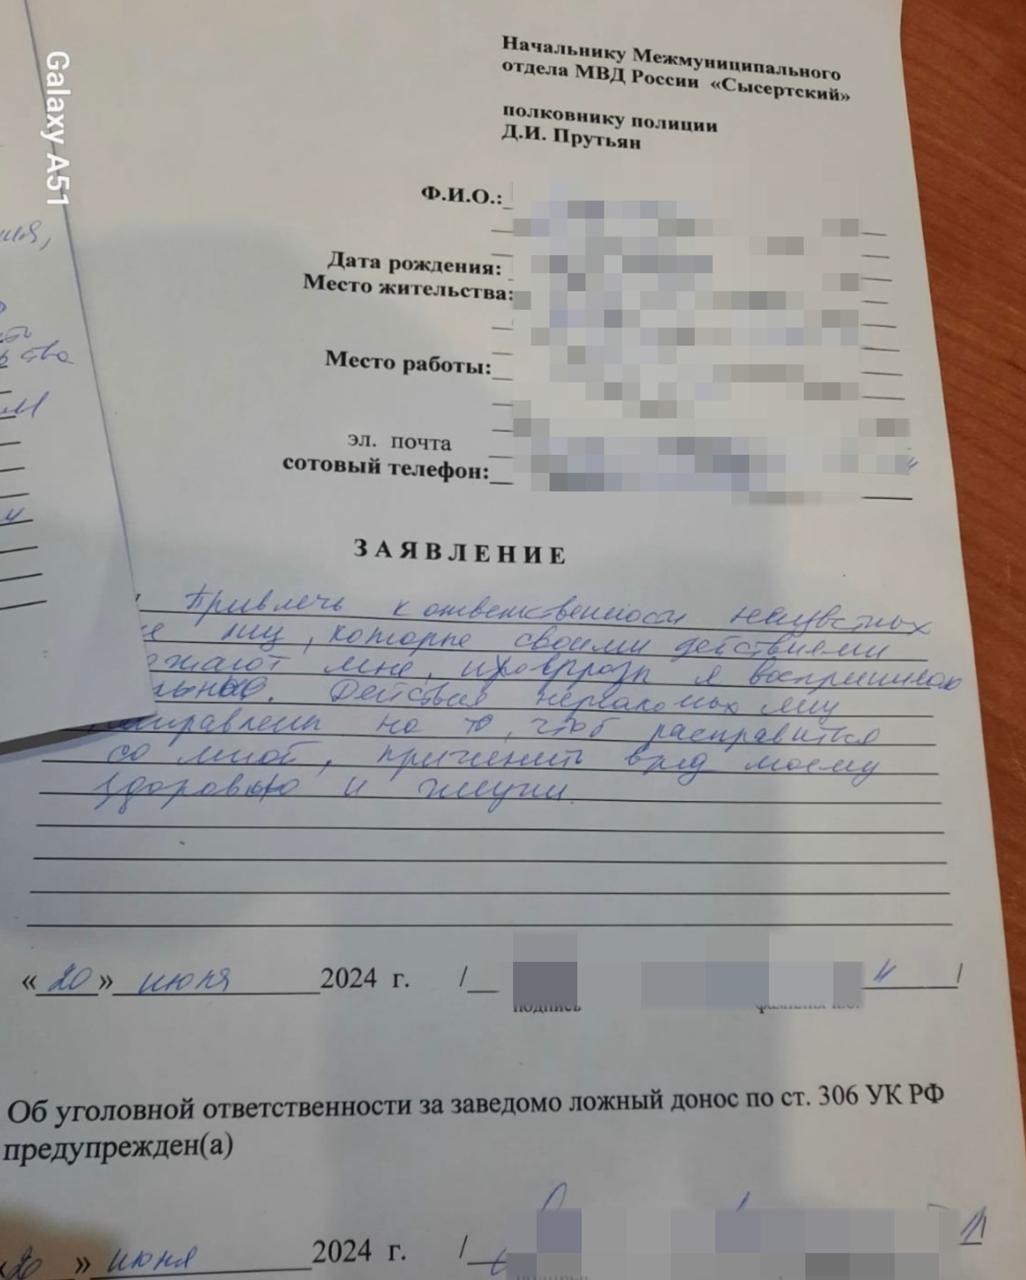 Galaxy A51
Начальнику Межмуниципального
отдела МВД России «Сысертский»
полковнику полиции
Д.И. Прутьян
Ф.И.О.:
Дата рождения:
Место жительства:
Место работы:
эл. почта
сотовый телефон:
ЗАЯВЛЕНИЕ
Привлечь к ответственности неизвестных
лиц, которые своими действиями
мне, я воспринимаю
Действия
направлены на то, чтоб расправится
со мной, причинить вред моему
здоровью и жизни
«20» июня 2024 г. /
подпись
/
Об уголовной ответственности за заведомо ложный донос по ст. 306 УК РФ
предупрежден(а)
«20» июня 2024 г. /